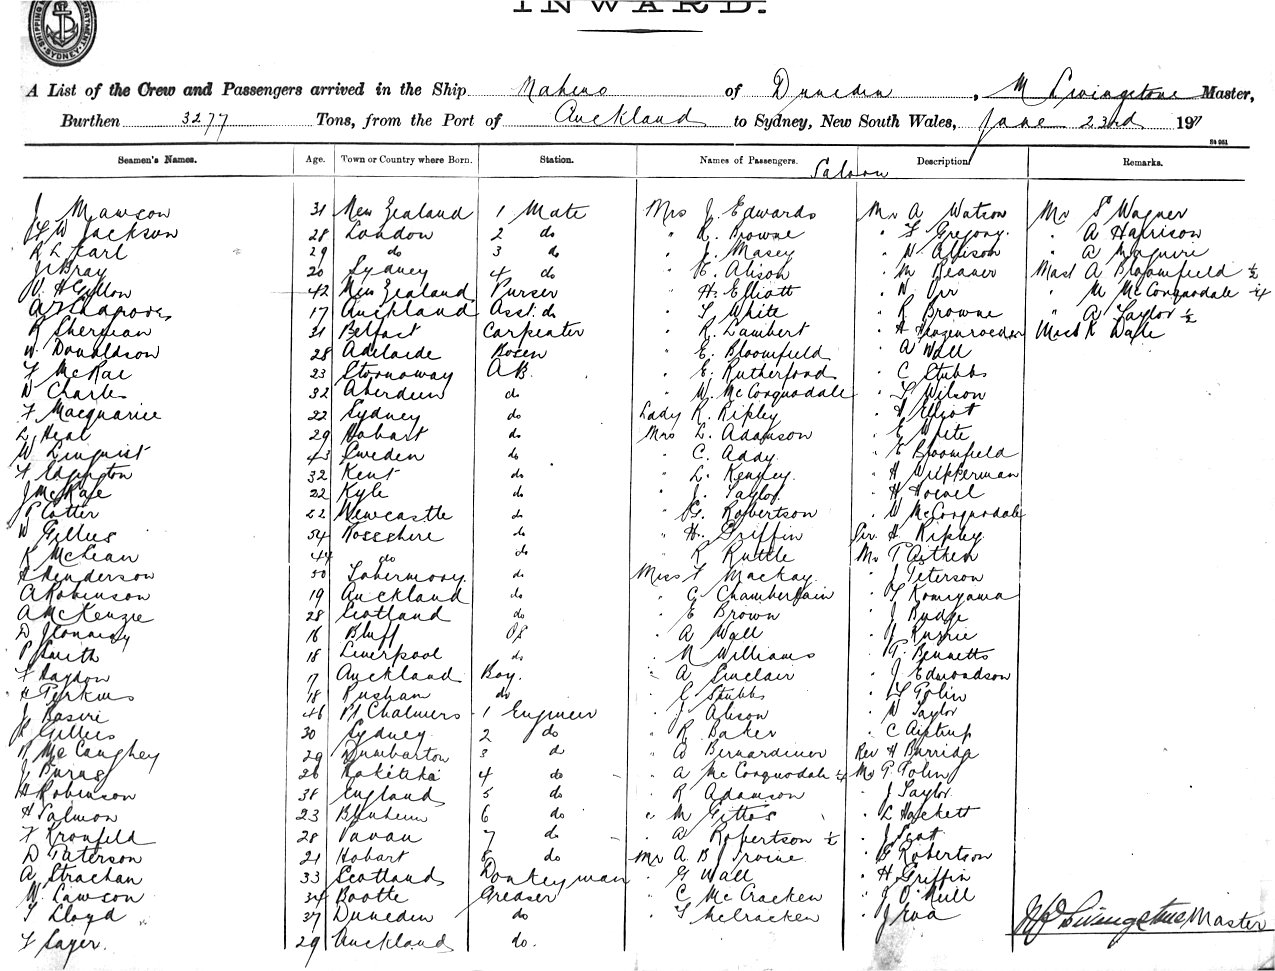 INWARD.
A List of the Crew and Passengers arrived in the Ship Maheno of Dunedin, M Livingstone Master,
Burthen 3277 Tons, from the Port of Auckland to Sydney, New South Wales, June 23rd 19
Seamen's Names. Age. Town or Country where Born. Station. Names of Passengers. Description Remarks.
Saloon
J Mawson 31 New Zealand 1 Mate Mrs J. Edwards Mr A Watson Mr Wagner
W Jackson 28 London 2 do " R. Browne " Gregory. " A Harrison
R L Earl 29 do 3 do " J. Masey " W Allison " A Maguire
J Bray 20 Sydney 4 do " E. Alison " M Beaver Mast A Bloomfield ½
42 New Zealand Purser " H. Elliott " W Orr " M McCorquodale ¼
17 Auckland Asst. do " White " R Browne " A Taylor ½
R Sherman 21 Belfast Carpenter " R. Lambert " H Miss K Dale
W. Donaldson 28 Adelaide Bosen " E. Bloomfield " A Wall
McRae 23 Stornoway A.B. " E. Rutherford " C Stubbs
D Charles 32 Aberdeen do " W. McCorquodale " Wilson
F Macquarie 22 Sydney do Lady R. Ripley " Elliot
L Heal 29 Hobart do Mrs L. Adamson " E White
W Linquist 43 Sweden do " C. Addy " E Bloomfield
Edgington 32 Kent do " L. Kengley " H
J McRae 22 Kyle do " J. Taylor " H
Cotter 22 Newcastle do " G. Robertson " W McCorquodale
W Gillies 54 Rossshire do " H. Griffin Sir H. Ripley
K McLean 44 do do " R Ruttle Mr T Aitken
H Henderson 50 Tobermory do Miss Mackay " J Peterson
A Robinson 19 Auckland do " C Chamberlain " Komiyama
A McKenzie 28 Scotland do " E Brown " J Budge
D 16 Bluff OS " A Wall " Currie
P Smith 18 Liverpool do " N Williams " G. Bennetts
F Haydon 17 Auckland Boy. " A Sinclair " J Edmondson
H Perkins 18 do " C Stubbs " Tolin
J 46 Pt Chalmers 1 Engineer " J. Alison " W Taylor
Gillies 30 Sydney 2 do " R Baker " C
R McCaughey 29 Dumbarton 3 do " Rev H Burridge
J Burns 26 4 do " A McCorquodale ¼ Mr Tolin
Robinson 38 England 5 do " R Adamson " J Taylor
H Salmon 23 Blenheim 6 do " M Gittos " L Hackett
F Kronfeld 28 Vavau 7 do " A Robertson ½ " J Scott
D Paterson 21 Hobart 8 do Mr A B Irvine " G Robertson
A Strachan 33 Scotland Donkeyman " G Wall " H Griffin
W. Lawson 34 Bootle Greaser " C McCracken " J O'Neill
Lloyd 37 Dunedin do " McCracken " J
Livingstone Master
Sager. 29 Auckland do.